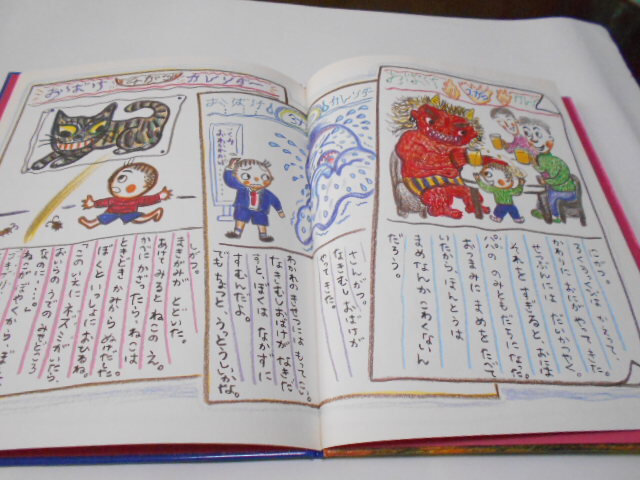 おばけ がつ
にがつ。
かわりに おにが やってきた。
せつぶんには だいかつやく
それを すぎると、おには
パパの のみともだちになった。
おつまみに まめを たべて
いたから ほんとうは
まめなんか こわくないん
だろう。
おばけ カレンダー
さんがつ。
なきむし おばけが
やってきた。
わかれの きせつには もってこい。
なきむし おばけが なきだ
すと、ぼくは なかずに
すむんだよ。
でも ちょっと うっとうしいかな。
おばけ しがつ カレンダー
しがつ。
まきがみが とどいた。
あけてみると ねこの え。
かべに かざったら、ねこは
ときどき かみから ぬけだした
ぼくと いっしょに おひるね。
「このいえに ネズミがいたら、
おいらの うでの みせどころ
なのに……。」
ねこが ぼやくから、
ゴキブリ